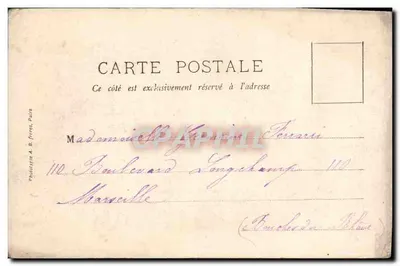 CARTE POSTALE
Ce côté est exclusivement réservé à l'adresse
Mademoiselle Ferrari
110 Boulevard Longchamp 110
Marseille
(Bouches du Rhône)
CPAPHIL
Phototypie A. B. frères, Paris